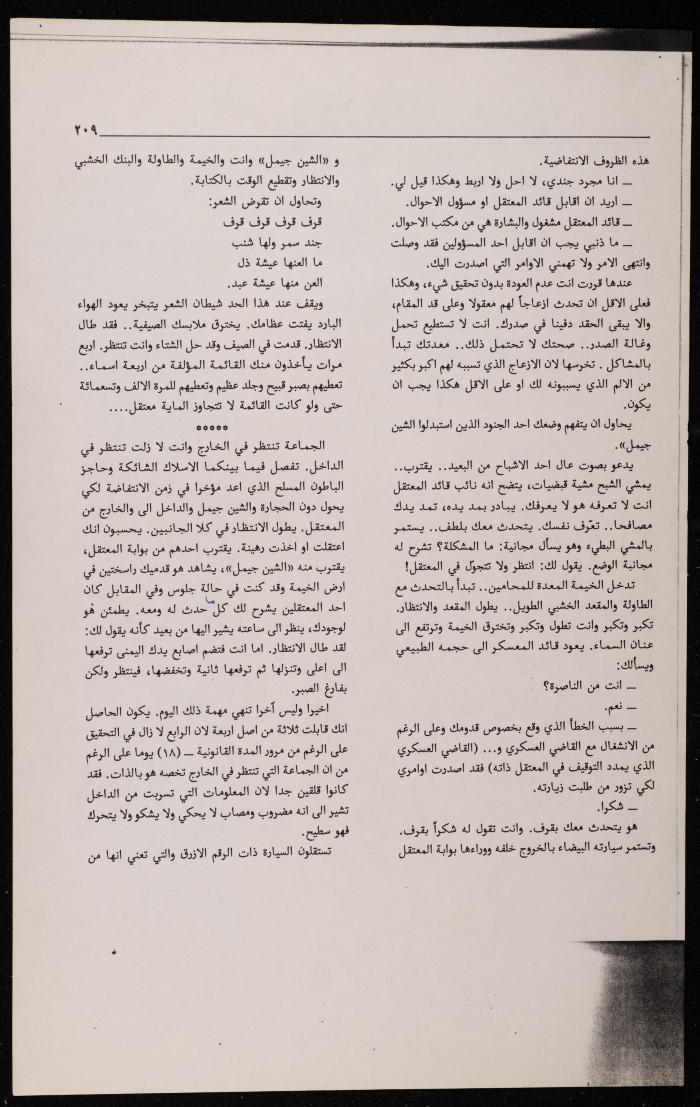 ٢٠٩
هذه الظروف الانتفاضية.
ـ انا مجرد جندي، لا احل ولا اربط وهكذا قيل لي.
ـ اريد ان اقابل قائد المعتقل او مسؤول الاحوال.
ـ قائد المعتقل مشغول والبشارة هي من مكتب الاحوال.
ـ ما ذنبي يجب ان اقابل احد المسؤولين فقد وصلت
وانتهى الامر ولا تهمني الاوامر التي اصدرت اليك.
عندها قررت انت عدم العودة بدون تحقيق شيء، وهكذا
فعلى الاقل ان تحدث ازعاجاً لهم معقولا وعلى قد المقام،
والا يبقى الحقد دفينا في صدرك. انت لا تستطيع تحمل
وغالة الصدر.. صحتك لا تحتمل ذلك.. معدتك تبدأ
بالمشاكل . تخرسها لان الازعاج الذي تسببه لهم اكبر بكثير
من الالم الذي يسببونه لك او على الاقل هكذا يجب ان
يكون.
يحاول ان يتفهم وضعك احد الجنود الذين استبدلوا الشين
جيمل».
يدعو بصوت عال احد الاشباح من البعيد.. يقترب..
يمشي الشبح مشية قبضيات، يتضح انه نائب قائد المعتقل
انت لا تعرفه هو لا يعرفك. يبادر بمد يده، تمد يدك
مصافحا.. تعرّف نفسك. يتحدث معك بلطف.. يستمر
بالمشي البطيء وهو يسأل مجانية: ما المشكلة؟ تشرح له
مجانبة الوضع. يقول لك: انتظر ولا تتجوّل في المعتقل!
تدخل الخيمة المعدة للمحامين.. تبدأ بالتحدث مع
الطاولة والمقعد الخشبي الطويل.. يطول المقعد والانتظار.
تكبر وتكبر وانت تطول وتكبر وتخترق الخيمة وترتفع الى
عنان السماء. يعود قائد المعسكر الى حجمه الطبيعي
ويسألك:
ـ انت من الناصرة؟
ـ نعم.
ـ بسبب الخطأ الذي وقع بخصوص قدومك وعلى الرغم
من الانشغال مع القاضي العسكري و... (القاضي العسكري
الذي يمدد التوقيف في المعتقل ذاته) فقد اصدرت اوامري
لكي تزور من طلبت زيارته.
ـ شكرا.
هو يتحدث معك بقرف. وانت تقول له شكراً بقرف.
وتستمر سيارته البيضاء بالخروج خلفه ووراءها بوابة المعتقل
و «الشين جيمل» وانت والخيمة والطاولة والبنك الخشبي
والانتظار وتقطيع الوقت بالكتابة.
وتحاول ان تقرض الشعر:
قرف قرف قرف قرف
جند سمر ولها شنب
ما العنها عيشة ذل
العن منها عيشة عبد.
ويقف عند هذا الحد شيطان الشعر يتبخر يعود الهواء
البارد يفتت عظامك. يخترق ملابسك الصيفية.. فقد طال
الانتظار. قدمت في الصيف وقد حل الشتاء وانت تنتظر. اربع
مرات يأخذون منك القائمة المؤلفة من اربعة اسماء..
تعطيهم بصبر قبيح وجلد عظيم وتعطيهم للمرة الالف وتسعمائة
حتى ولو كانت القائمة لا تتجاوز الماية معتقل....
*****
الجماعة تنتظر في الخارج وانت لا زلت تنتظر في
الداخل. تفصل فيما بينكما الاسلاك الشائكة وحاجز
الباطون المسلح الذي اعد مؤخرا في زمن الانتفاضة لكي
يحول دون الحجارة والشين جيمل والداخل الى والخارج من
المعتقل. يطول الانتظار في كلا الجانبين. يحسبون انك
اعتقلت او اخذت رهينة. يقترب احدهم من بوابة المعتقل،
يقترب منه «الشين جيمل»، يشاهد هو قدميك راسختين في
ارض الخيمة وقد كنت في حالة جلوس وفي المقابل كان
احد المعتقلين يشرح لك كل ما حدث له ومعه. يطمئن هو
لوجودك، ينظر الى ساعته يشير اليها من بعيد كأنه يقول لك:
لقد طال الانتظار. اما انت فتضم اصابع يدك اليمنى ترفعها
الى اعلى وتنزلها ثم ترفعها ثانية وتخفضها، فينتظر ولكن
بفارغ الصبر.
اخيرا وليس آخرا تنهي مهمة ذلك اليوم. يكون الحاصل
انك قابلت ثلاثة من اصل اربعة لان الرابع لا زال في التحقيق
على الرغم من مرور المدة القانونية ـ (١٨) يوما على الرغم
من ان الجماعة التي تنتظر في الخارج تخصه هو بالذات. فقد
كانوا قلقين جدا لان المعلومات التي تسربت من الداخل
تشير الى انه مضروب ومصاب لا يحكي ولا يشكو ولا يتحرك
فهو سطيح.
تستقلون السيارة ذات الرقم الازرق والتي تعني انها من